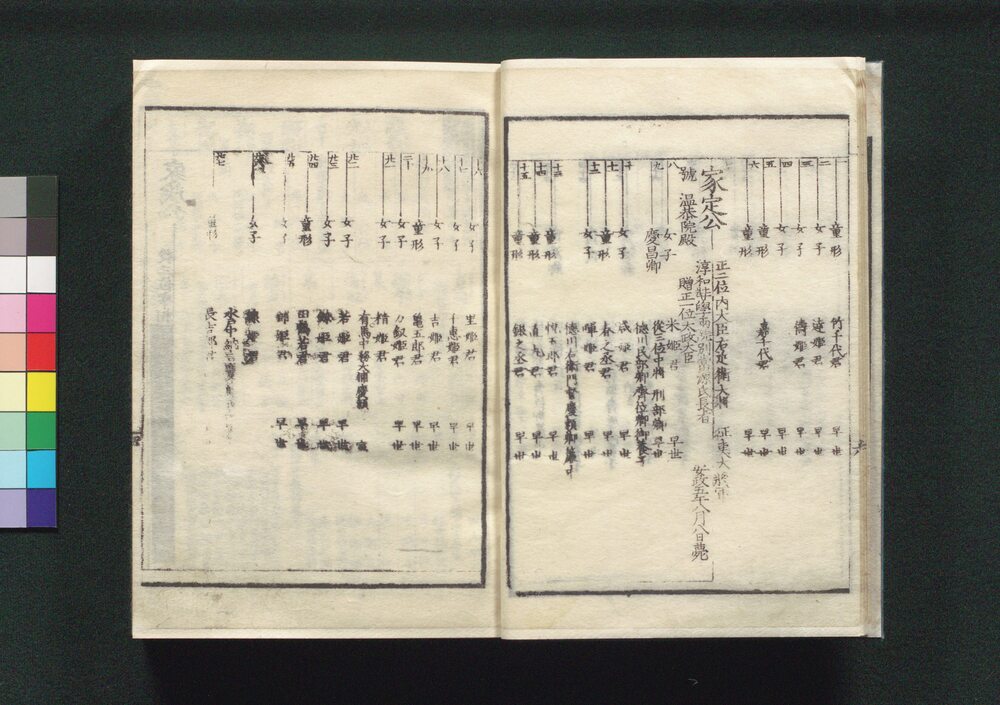 一 童形 竹千代君 早世
二 女子 達姫君 早世
三 女子 儔姫君 早世
四 女子 早世
五 童形 嘉千代君 早世
六 童形 早世
家定公
正二位内大臣右近衛大将 征夷大将軍
淳和奨学両院別当源氏長者
號 温恭院殿 贈正一位太政大臣 安政五年八月八日薨
八 女子 米姫君 早世
九 慶昌卿 従三位中将 刑部卿 早世
徳川民部卿齊位卿御養子
十 女子 咸姫君 早世
十一 童形 春之丞君 早世
十二 女子 暉姫君 早世
徳川右衛門督慶頼卿
十三 童形 悌五郎君 早世
十四 童形 直丸君 早世
十五 童形 銀之丞君 早世
女子 里姫君 早世
女子 千恵姫君 早世
十八 女子 吉姫君 早世
十九 童形 亀五郎君 早世
二十 女子 万釵姫君 早世
廿一 女子 精姫君
有馬中務大輔慶頼 室
廿二 女子 若姫君 早世
廿三 女子 姫君 早世
廿四 童形 田鶴若君 早世
女子 姫君 早世
女子
廿七 童形 長吉郎君